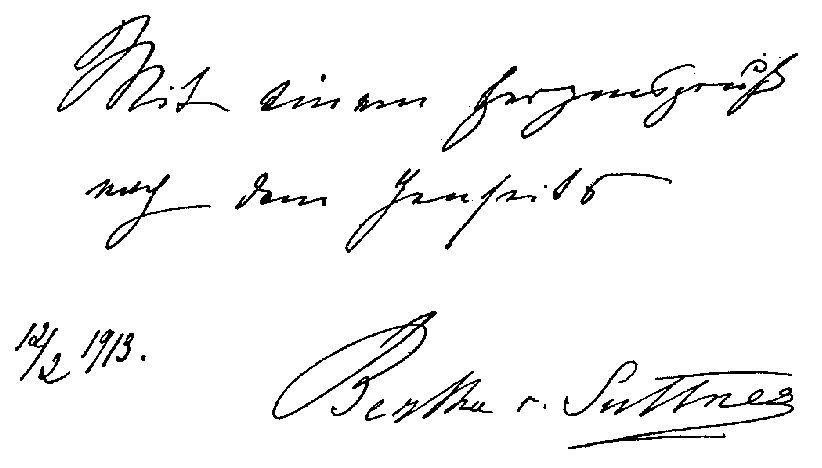 Mit einem Herzensgruß
nach dem Jenseits
12/2 1913.
Bertha v. Suttner